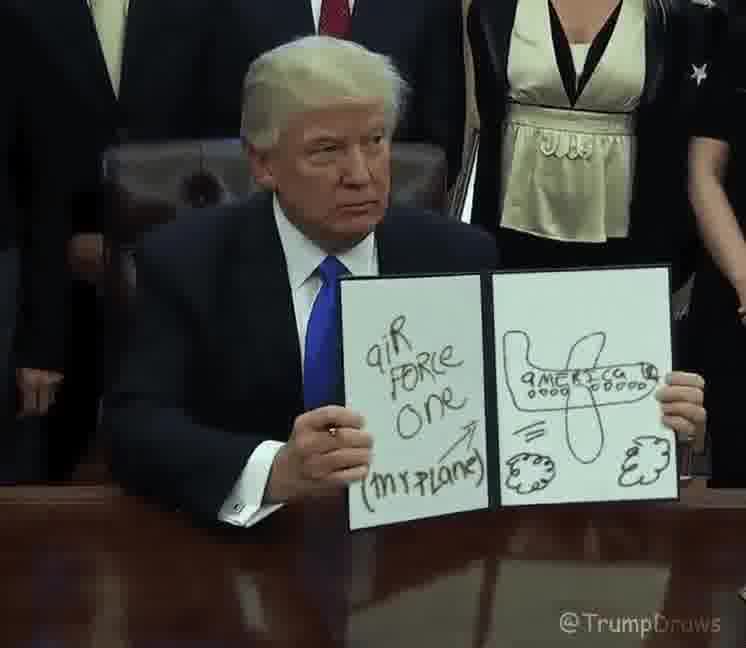 aiR
FORCE
one
(mY PLane)
aMERICa
@TrumpDraws